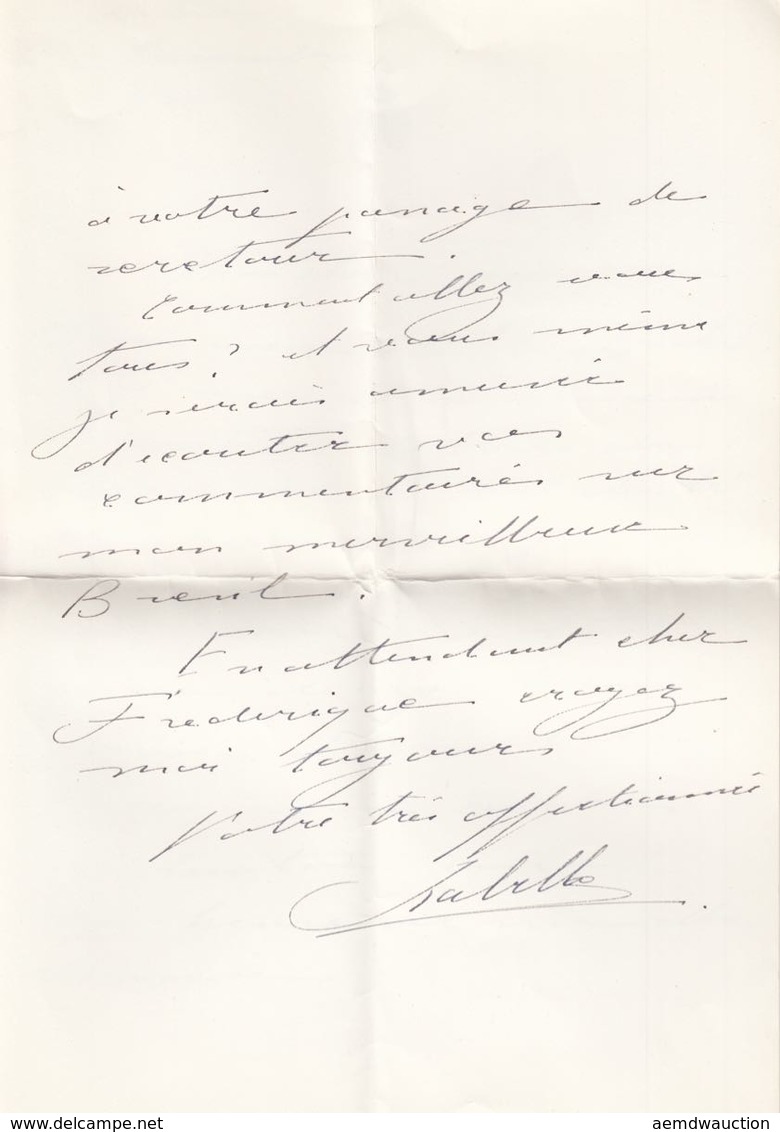 à votre passage de
retour.
Comment allez vous
tous? et vous même
je serais amusée
d'écouter vos
commentaires sur
mon merveilleux
Bresil.
En attendant cher
Fréderique croyez
moi toujours
Votre très affectionnée
Isabelle
© www.delcampe.net
aemdwauction